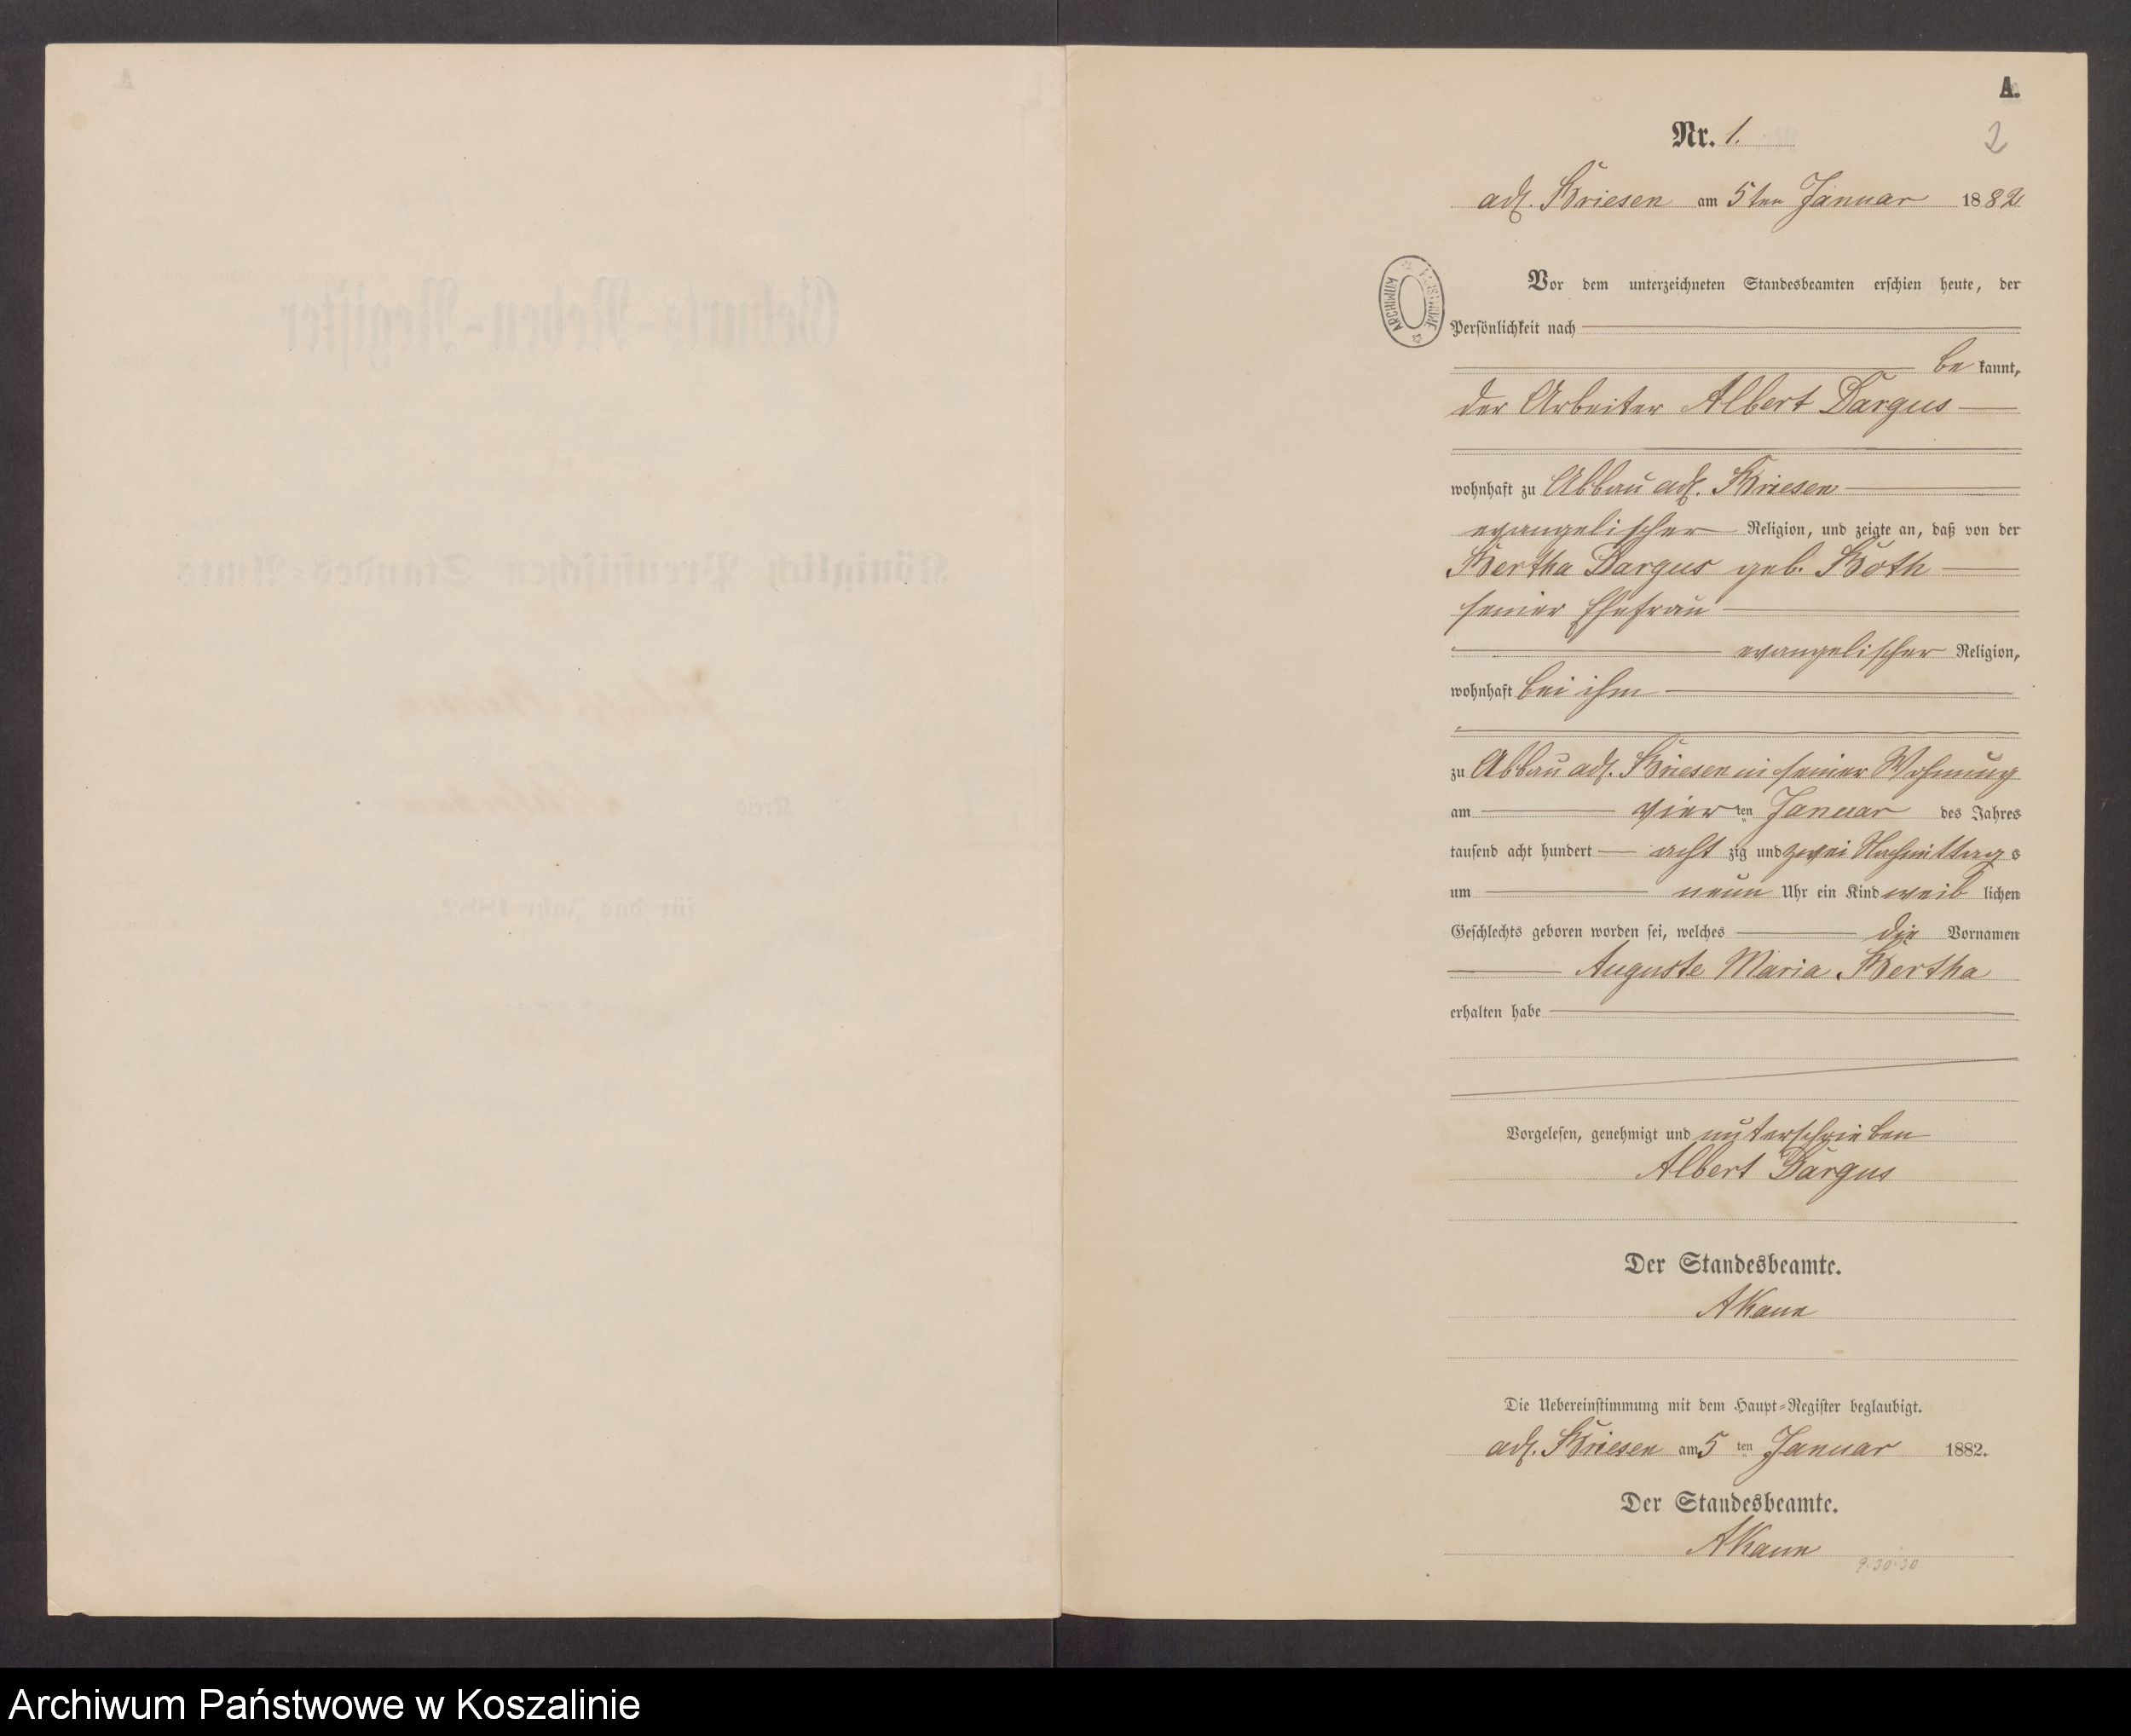 A.
Nr. 1.
2
adl. Briesen am 5ten Januar 1882
Vor dem unterzeichneten Standesbeamten erschien heute, der
Persönlichkeit nach
be kannt,
der Arbeiter Albert Dargus
wohnhaft zu Abbau adl. Briesen
evangelischer Religion, und zeigte an, daß von der
Bertha Dargus geb. Both
seiner Ehefrau
evangelischer Religion,
wohnhaft bei ihm
zu Abbau adl. Briesen in seiner Wohnung
am vier ten Januar des Jahres
tausend acht hundert acht zig und zwei Nachmittags
um neun Uhr ein Kind weib lichen
Geschlechts geboren worden sei, welches die Vornamen
Auguste Maria Bertha
erhalten habe
Vorgelesen, genehmigt und unterschrieben
Albert Dargus
Der Standesbeamte.
Die Uebereinstimmung mit dem Haupt-Register beglaubigt.
adl. Briesen am 5 ten Januar 1882.
Der Standesbeamte.
9.30.30
ARCHIWUM
Geburts-Neben-Register
Königlich Preußischen Standes-Amts
Kreis
für das Jahr 1882.
Archiwum Państwowe w Koszalinie